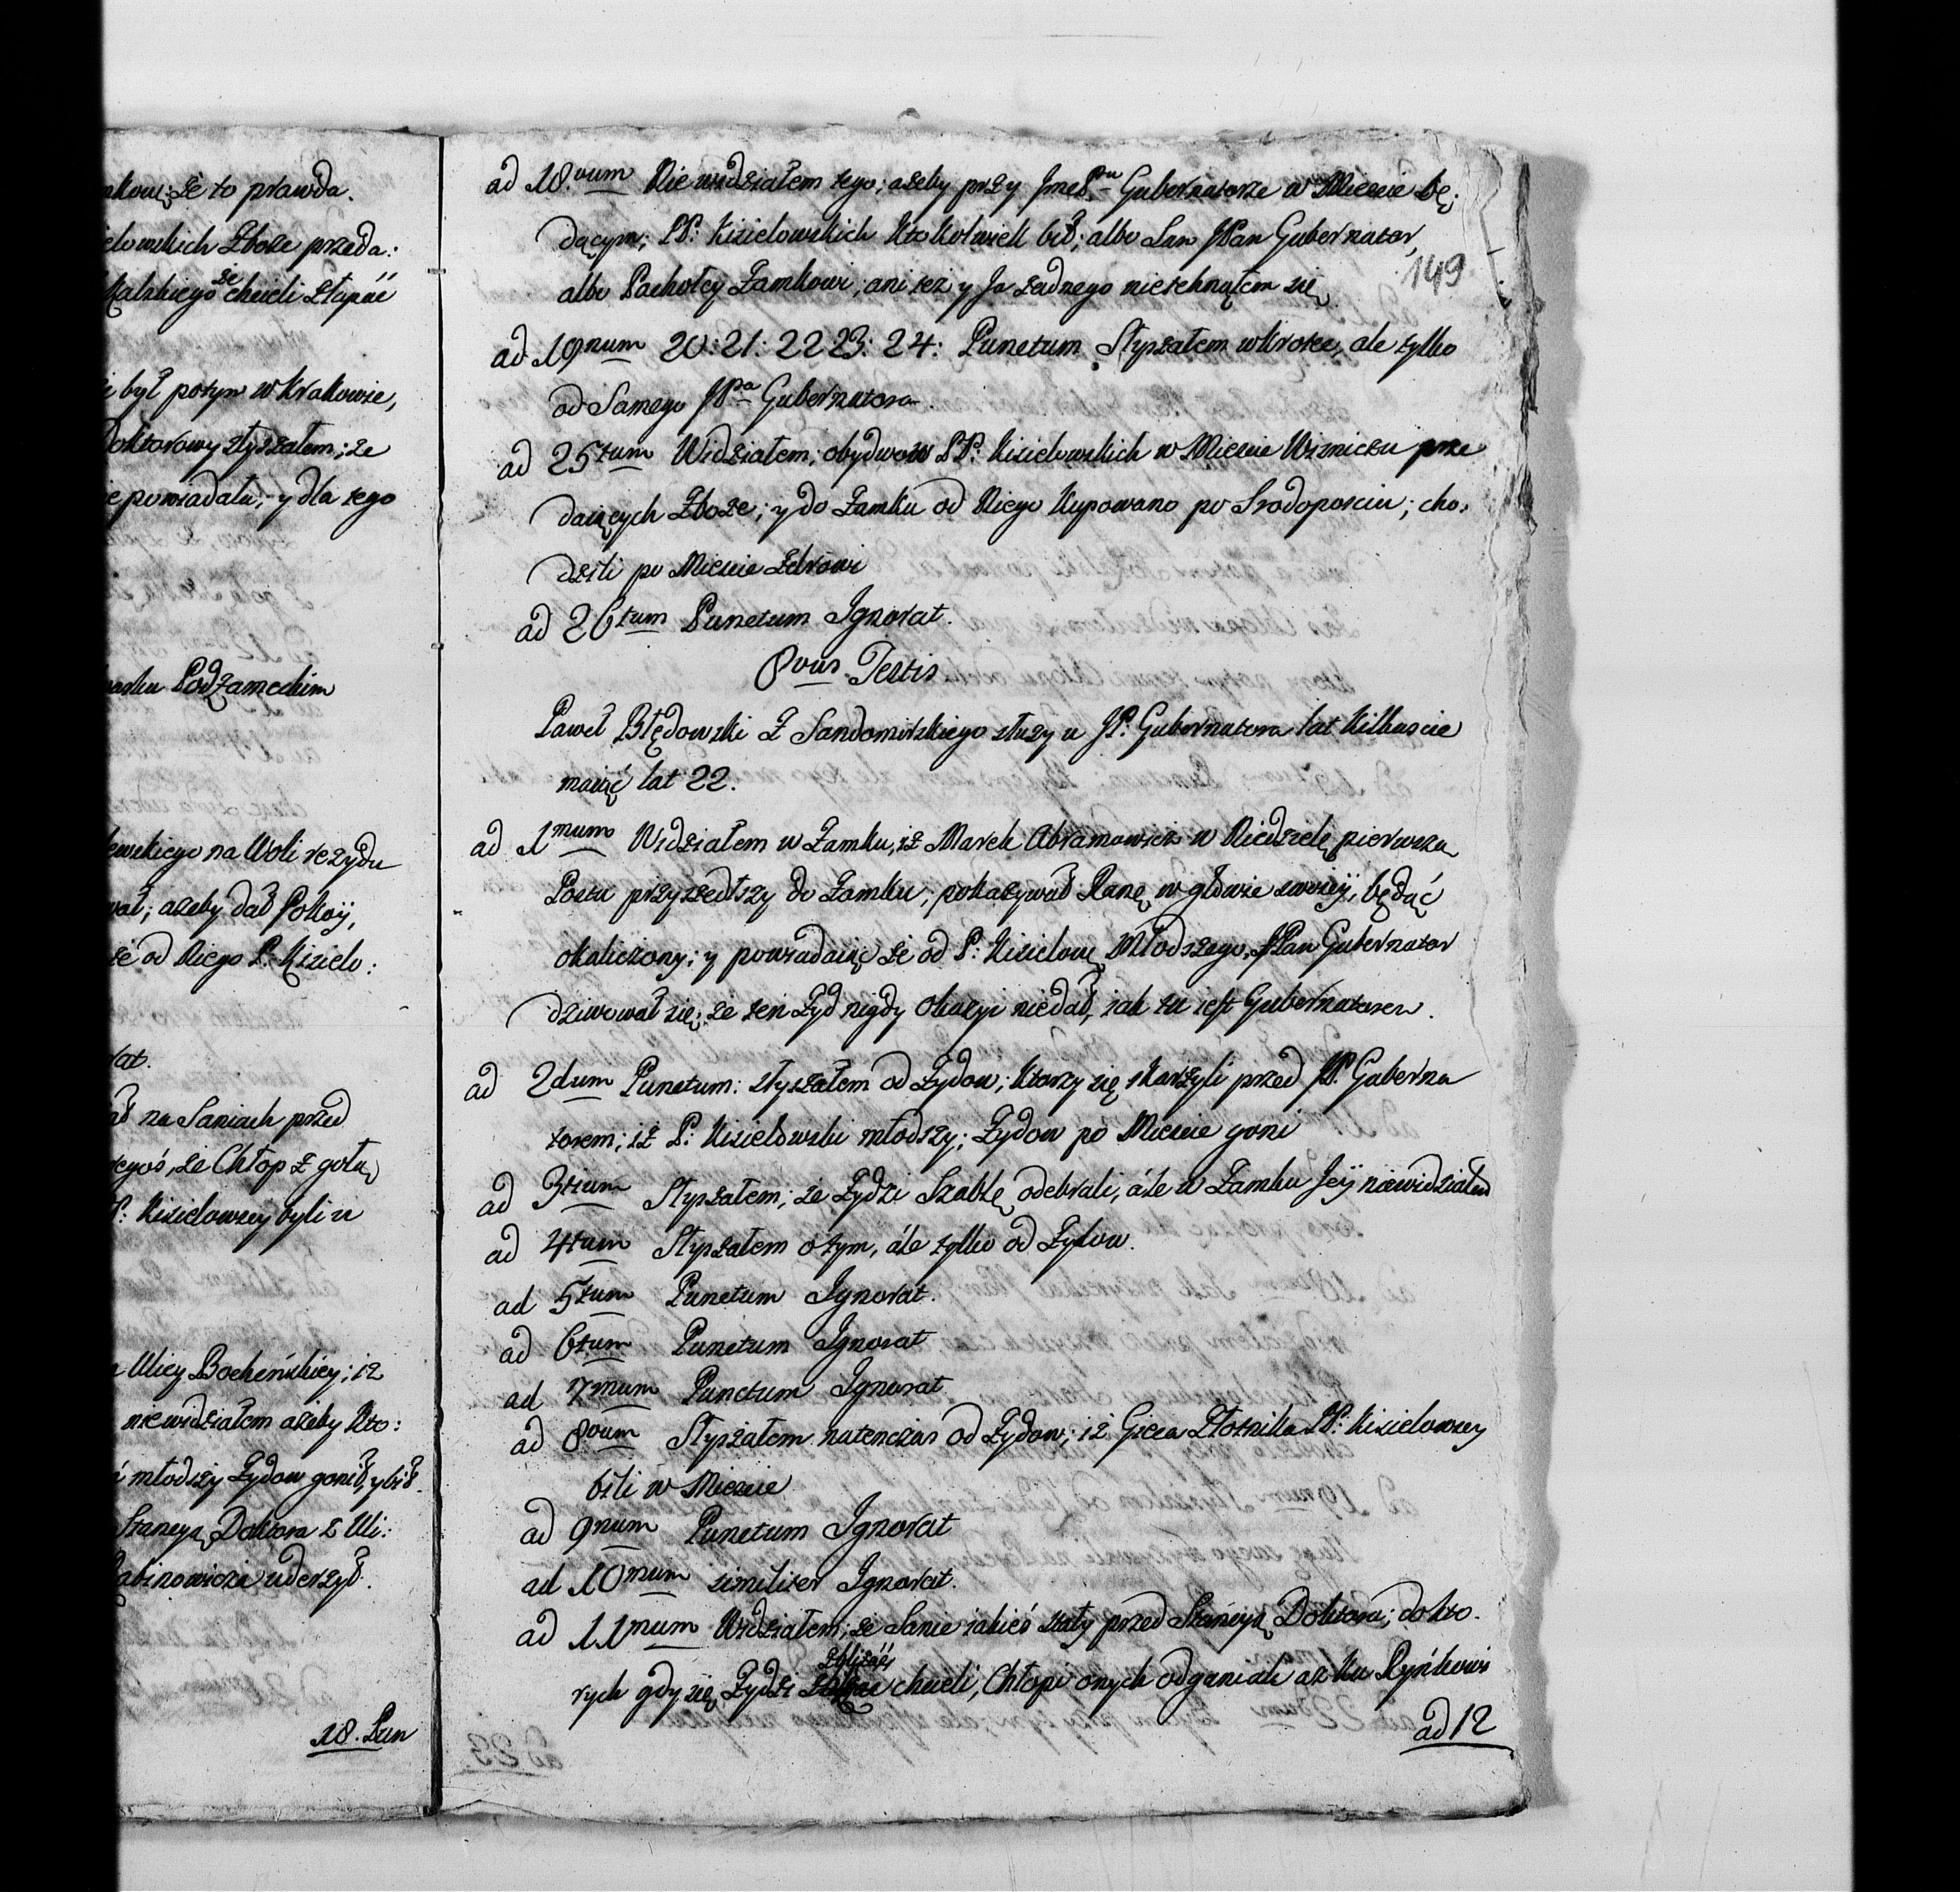 nkow; że to prawda.
elowskich Zboże przeda:
kalskiego że chcieli złapać
i był potym w Krakowie,
Doktorowy słyszałem; że
ie powiadała; y dla tego
Podzameckim
ewskiego na Woli rezydu
wał; ażeby dał Pokóÿ,
że od Niego P: Kisielo:
rat.
ał na Saniach przed
czegoś, że Chłop z gołą
P: Kisielowscy byli u
Ulicy Bocheńskiey; iż
niewidziałem ażeby Kto:
i młodszy Zydow gonił, y bił.
Stancyą Doktora z Uli:
abinowicza uderzył.
18. Pun
ad 18.vum Niewidziałem tego; ażeby przy JmcPu Gubernatorze w Miescie bę;
dącym; PP: Kisielowskich Ktokolwiek bił; albo Sam JPan Gubernator,
albo Pachołcy Zamkowi; ani też y Ja żadnego nietchnąłem się
149
ad 19num 20: 21: 22 23: 24: Punctum Słyszałem wkrotce, ale tylko
od Samego JPa Gubernatora.
ad 25tum Widziałem; obydwow PP: Kisielowskich w Miescie Wisniczu prze
daiących Zboże; y do Zamku od Niego Kupowano po Srodoposciu; cho,
dzili po Miescie Zdrowi
ad 26tum Punctum Ignorat.
8vus Testis
Paweł Błędowski Z Sandomirskiego służy u JP: Gubernatora lat Kilkascie
maiąć lat 22.
ad 1mum Widziałem w Zamku, iż Marek Abramowicz w Niedzielę pierwszą
Postu przyszedłszy do Zamku; pokazywał Ranę w głowie swoieÿ, będąć
okaliczony; y powiadaiąc że od P: Kisielows. Młodszego, JPan Gubernator
dziwował się; że ten Zyd nigdy okazyi niedał, iak tu iest Gubernatorem.
ad 2dum Punctum: słyszałem od Zydow; Ktorzy się skarżyli przed JP: Guberna
torem; iż P: Kisielowski młodszy; Zydow po Miescie goni
ad 3tium Słyszałem; że Zydzi Szablę odebrali, ále w Zamku Jeÿ niewidziałem
ad 4tum Słyszałem o tym, ále tylko od Zydow.
ad 5tum Punctum Ignorat.
ad 6tum Punctum Ignorat
ad 7mum Punctum Ignorat
ad 8vum Słyszałem natenczas od Zydow; iż Giecza Złotnika PP: Kisielowscy
bili w Miescie
ad 9num Punctum Ignorat
ad 10mum similiter Ignorat.
ad 11mum Widziałem; że Sanie iakieś stały przed Stáncyą Doktora; dokto.
zbliżáć
rych gdy się Zydzi chcieli, Chłopi onych odganiali aż ku Rynkowi
ad 12